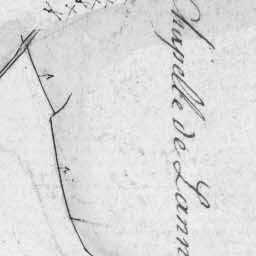 Chapelle de Lann